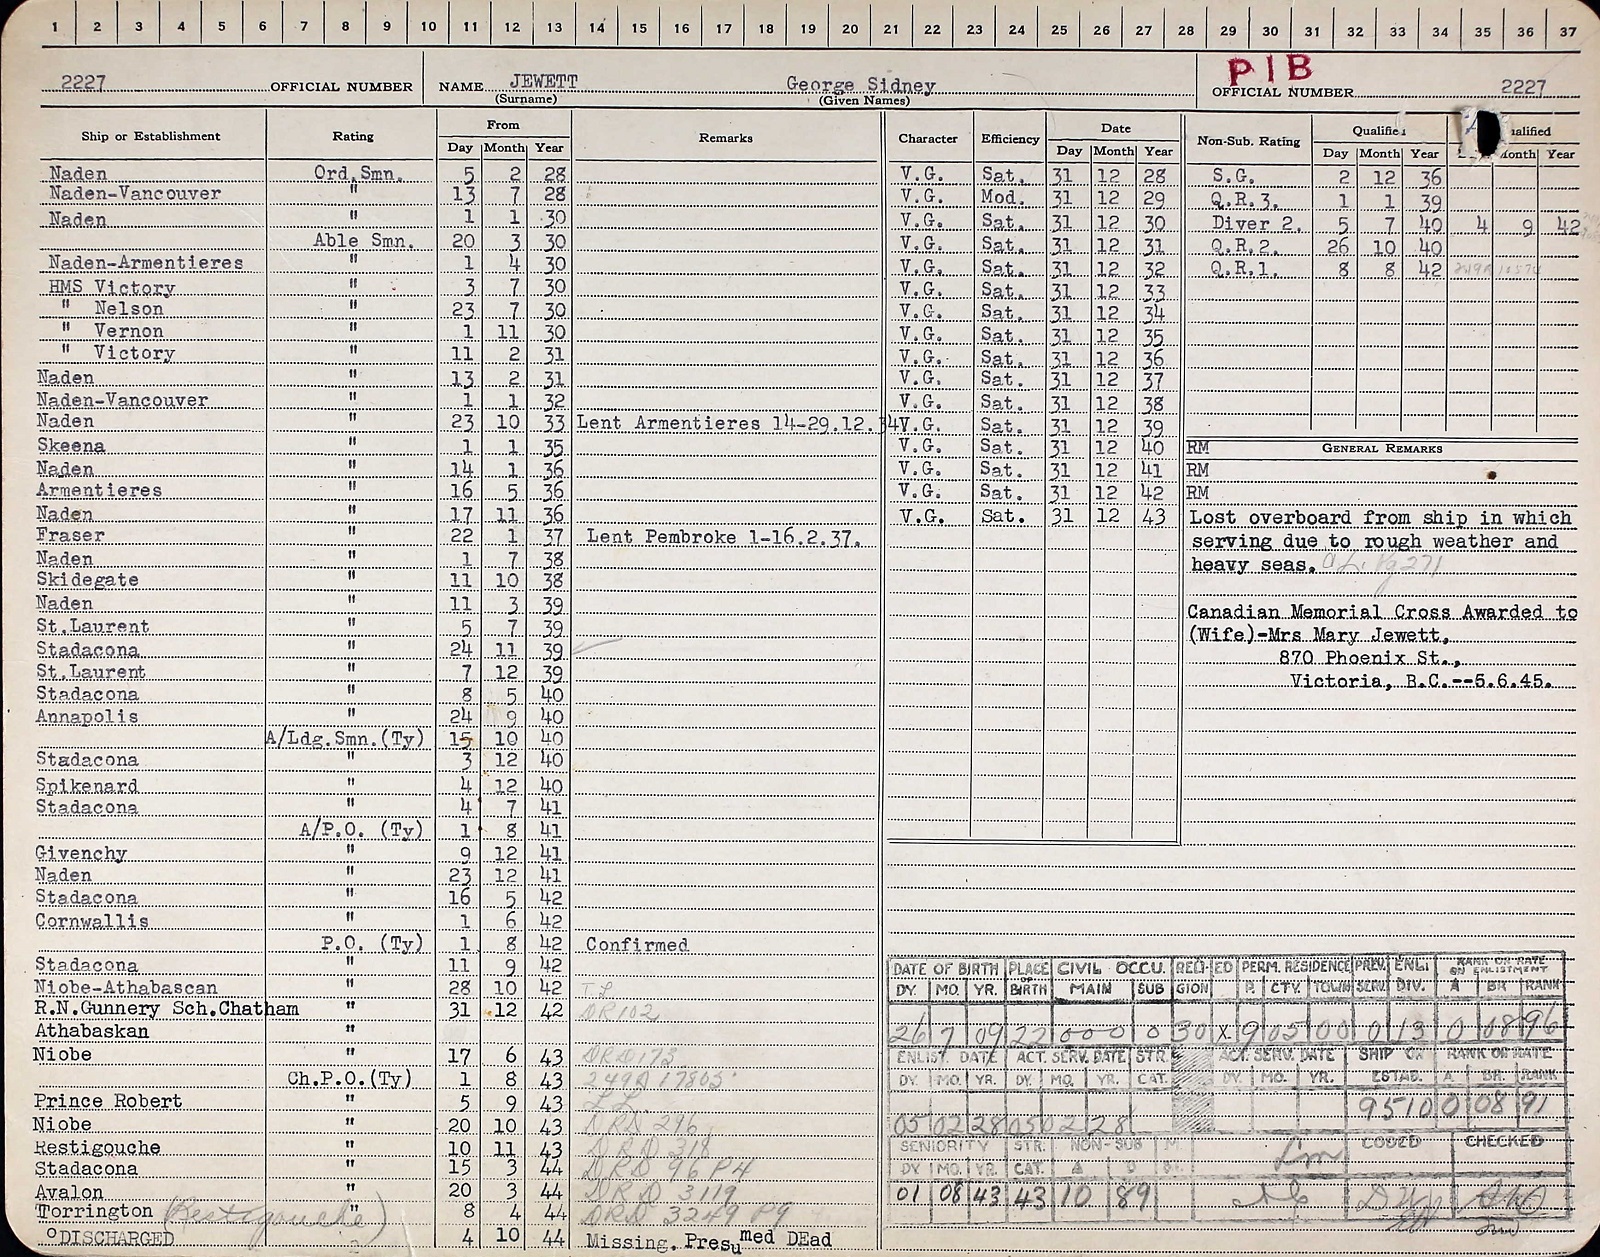 1 2 3 4 5 6 7 8 9 10 11 12 13 14 15 16 17 18 19 20 21 22 23 24 25 26 27 28 29 30 31 32 33 34 35 36 37
P I B
2227 OFFICIAL NUMBER NAME JEWETT George Sidney OFFICIAL NUMBER 2227
(Surname) (Given Names)
Ship or Establishment Rating From Remarks
Day Month Year
Naden Ord.Smn. 5 2 28
Naden-Vancouver " 13 7 28
Naden " 1 1 30
Able Smn. 20 3 30
Naden-Armentieres " 1 4 30
HMS Victory " 3 7 30
" Nelson " 23 7 30
" Vernon " 1 11 30
" Victory " 11 2 31
Naden " 13 2 31
Naden-Vancouver " 1 1 32
Naden " 23 10 33 Lent Armentieres 14-29.12.34
Skeena " 1 1 35
Naden " 14 1 36
Armentieres " 16 5 36
Naden " 17 11 36
Fraser " 22 1 37 Lent Pembroke 1-16.2.37.
Naden " 1 7 38
Skidegate " 11 10 38
Naden " 11 3 39
St.Laurent " 5 7 39
Stadacona " 24 11 39
St.Laurent " 7 12 39
Stadacona " 8 5 40
Annapolis " 24 9 40
A/Ldg.Smn.(Ty) 15 10 40
Stadacona " 3 12 40
Spikenard " 4 12 40
Stadacona " 4 7 41
A/P.O. (Ty) 1 8 41
Givenchy " 9 12 41
Naden " 23 12 41
Stadacona " 16 5 42
Cornwallis " 1 6 42
P.O. (Ty) 1 8 42 Confirmed
Stadacona " 11 9 42
Niobe-Athabascan " 28 10 42
R.N.Gunnery Sch.Chatham " 31 12 42 DR102
Athabaskan "
Niobe " 17 6 43 DRD173
Ch.P.O.(Ty) 1 8 43 249A 17805
Prince Robert " 5 9 43
Niobe " 20 10 43 DRD 296
Restigouche " 10 11 43 DRD 318
Stadacona " 15 3 44 DRD 96 P4
Avalon " 20 3 44 DRD 3119
Torrington (Restigouche) " 8 4 44 DRD 3249 P9
°DISCHARGED 4 10 44 Missing. Presumed DEad
Character Efficiency Date
Day Month Year
V.G. Sat. 31 12 28
V.G. Mod. 31 12 29
V.G. Sat. 31 12 30
V.G. Sat. 31 12 31
V.G. Sat. 31 12 32
V.G. Sat. 31 12 33
V.G. Sat. 31 12 34
V.G. Sat. 31 12 35
V.G. Sat. 31 12 36
V.G. Sat. 31 12 37
V.G. Sat. 31 12 38
V.G. Sat. 31 12 39
V.G. Sat. 31 12 40 RM
V.G. Sat. 31 12 41 RM
V.G. Sat. 31 12 42 RM
V.G. Sat. 31 12 43
Non-Sub. Rating Qualified
Day Month Year Month Year
S.G. 2 12 36
Q.R.3. 1 1 39
Diver 2. 5 7 40 4 9 42
Q.R.2. 26 10 40
Q.R.1. 8 8 42
GENERAL REMARKS
Lost overboard from ship in which
serving due to rough weather and
heavy seas.
Canadian Memorial Cross Awarded to
(Wife)-Mrs Mary Jewett,
870 Phoenix St.,
Victoria, B.C.--5.6.45.
DATE OF BIRTH PLACE CIVIL OCCU. RELI- ED PERM. RESIDENCE PREV. ENL. RANK OR RATE ON ENLISTMENT
DY. MO. YR. BIRTH MAIN SUB GION P. CTY. TOWN SERV. DIV. A BR RANK
26 7 09 22 000 0 30 X 9 05 00 0 13 0 08 96
ENLIST. DATE ACT. SERV. DATE STR. ACT. SERV. DATE SHIP OR RANK OR RATE
DY. MO. YR. DY. MO. YR. CAT. DY. MO. YR. ESTAB. A BR. RANK
05 02 28 05 02 28 9510 0 08 91
SENIORITY STR. NON-SUB CODED CHECKED
DY MO. YR. CAT.
01 08 43 43 10 89